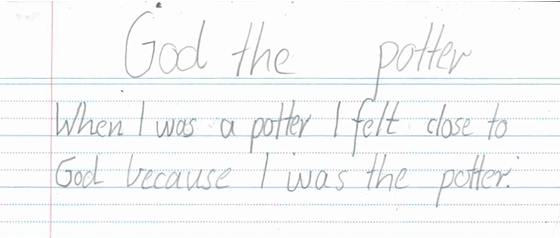 God the potter
When I was a potter I felt close to
God because I was the potter.